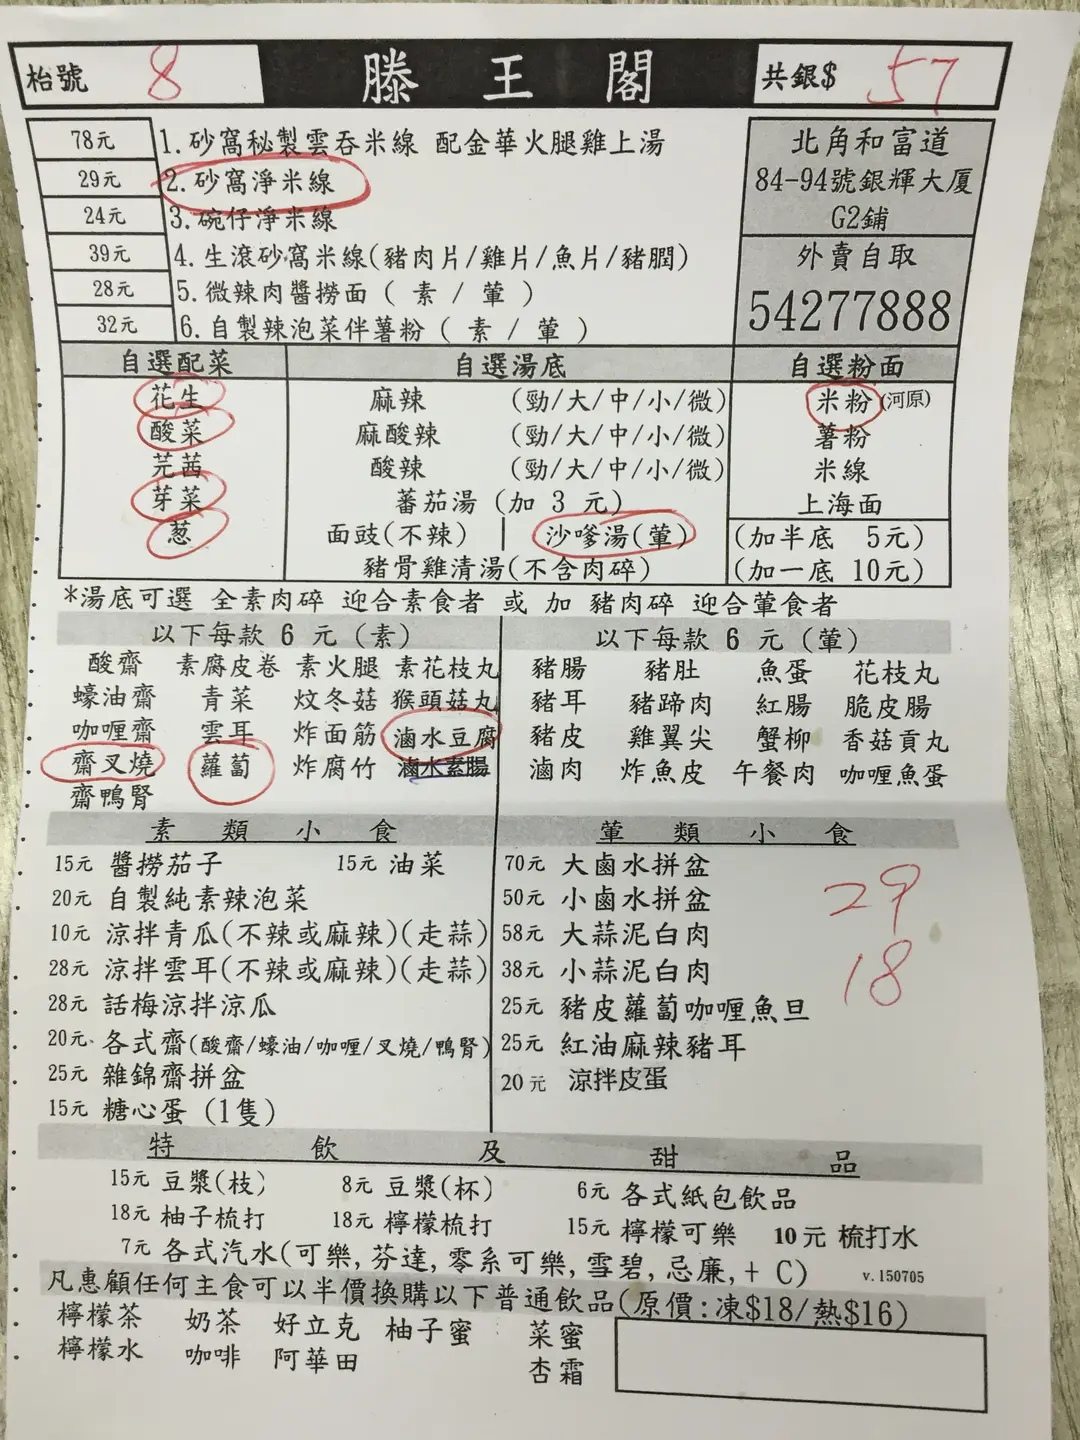 枱號 8 滕王閣 共銀$ 57
78元 1. 砂窩秘製雲吞米線 配金華火腿雞上湯
29元 2. 砂窩淨米線
24元 3. 碗仔淨米線
39元 4. 生滾砂窩米線(豬肉片/雞片/魚片/豬膶)
28元 5. 微辣肉醬撈面 ( 素 / 葷 )
32元 6. 自製辣泡菜伴薯粉 ( 素 / 葷 )
北角和富道
84-94號銀輝大厦
G2鋪
外賣自取
54277888
自選配菜 自選湯底 自選粉面
花生 麻辣 (勁/大/中/小/微) 米粉(河原)
酸菜 麻酸辣 (勁/大/中/小/微) 薯粉
芫茜 酸辣 (勁/大/中/小/微) 米線
芽菜 蕃茄湯 (加 3 元) 上海面
葱 面豉(不辣) | 沙嗲湯(葷) (加半底 5元)
豬骨雞清湯(不含肉碎) (加一底 10元)
*湯底可選 全素肉碎 迎合素食者 或 加 豬肉碎 迎合葷食者
以下每款 6 元 (素) 以下每款 6 元 (葷)
酸齋 素腐皮卷 素火腿 素花枝丸 豬腸 豬肚 魚蛋 花枝丸
蠔油齋 青菜 炆冬菇 猴頭菇丸 豬耳 豬蹄肉 紅腸 脆皮腸
咖喱齋 雲耳 炸面筋 滷水豆腐 豬皮 雞翼尖 蟹柳 香菇貢丸
齋叉燒 蘿蔔 炸腐竹 滷水素腸 滷肉 炸魚皮 午餐肉 咖喱魚蛋
齋鴨腎
素類小食 葷類小食
15元 醬撈茄子 15元 油菜 70元 大鹵水拼盆
20元 自製純素辣泡菜 50元 小鹵水拼盆 29
10元 涼拌青瓜(不辣或麻辣)(走蒜) 58元 大蒜泥白肉
28元 涼拌雲耳(不辣或麻辣)(走蒜) 38元 小蒜泥白肉 18
28元 話梅涼拌涼瓜 25元 豬皮蘿蔔咖喱魚旦
20元 各式齋(酸齋/蠔油/咖喱/叉燒/鴨腎) 25元 紅油麻辣豬耳
25元 雜錦齋拼盆 20元 涼拌皮蛋
15元 糖心蛋 (1隻)
特飲及甜品
15元 豆漿(枝) 8元 豆漿(杯) 6元 各式紙包飲品
18元 柚子梳打 18元 檸檬梳打 15元 檸檬可樂 10元 梳打水
7元 各式汽水(可樂,芬達,零系可樂,雪碧,忌廉,+ C) v.150705
凡惠顧任何主食可以半價換購以下普通飲品(原價:凍$18/熱$16)
檸檬茶 奶茶 好立克 柚子蜜 菜蜜
檸檬水 咖啡 阿華田 杏霜